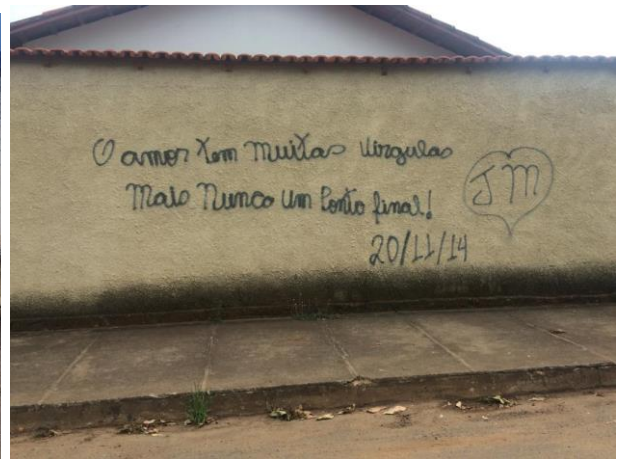 O amor tem muitas virgulas
Mais Nunca um Ponto final!
JM
20/11/14